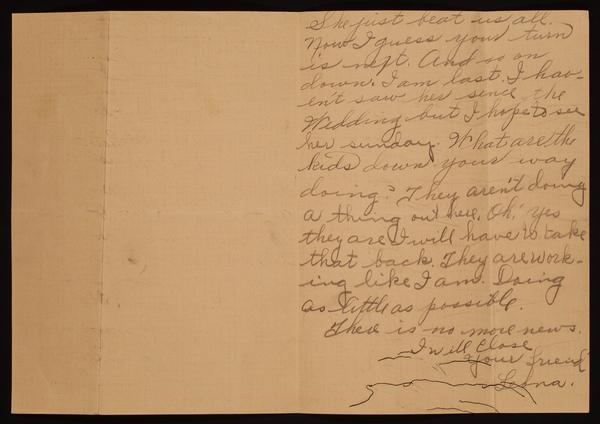 She just beat us all.
Now I guess your turn
is next. And so on
down. I am last. I hav-
en't saw her sence the
Wedding but I hope to see
her sunday. What are the
kids down your way
doing? They aren't doing
a thing out here. Oh! yes
they are I will have to take
that back. They are work-
ing like I am. Doing
as little as possible.
There is no more news.
I will Close
Your friend
Leona.